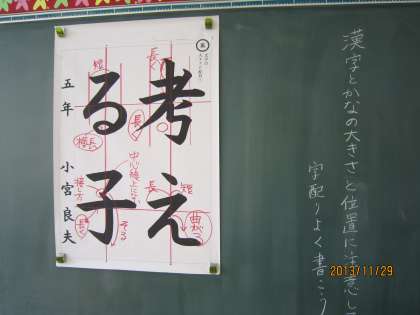 漢字とかなの大きさと位置に注意して
字配りよく書こう
考え
る子
五年 小宮良夫
長く
短
長く
横長
中心線上に
接し方
長く
そる
長
短
曲がる
2013/11/29